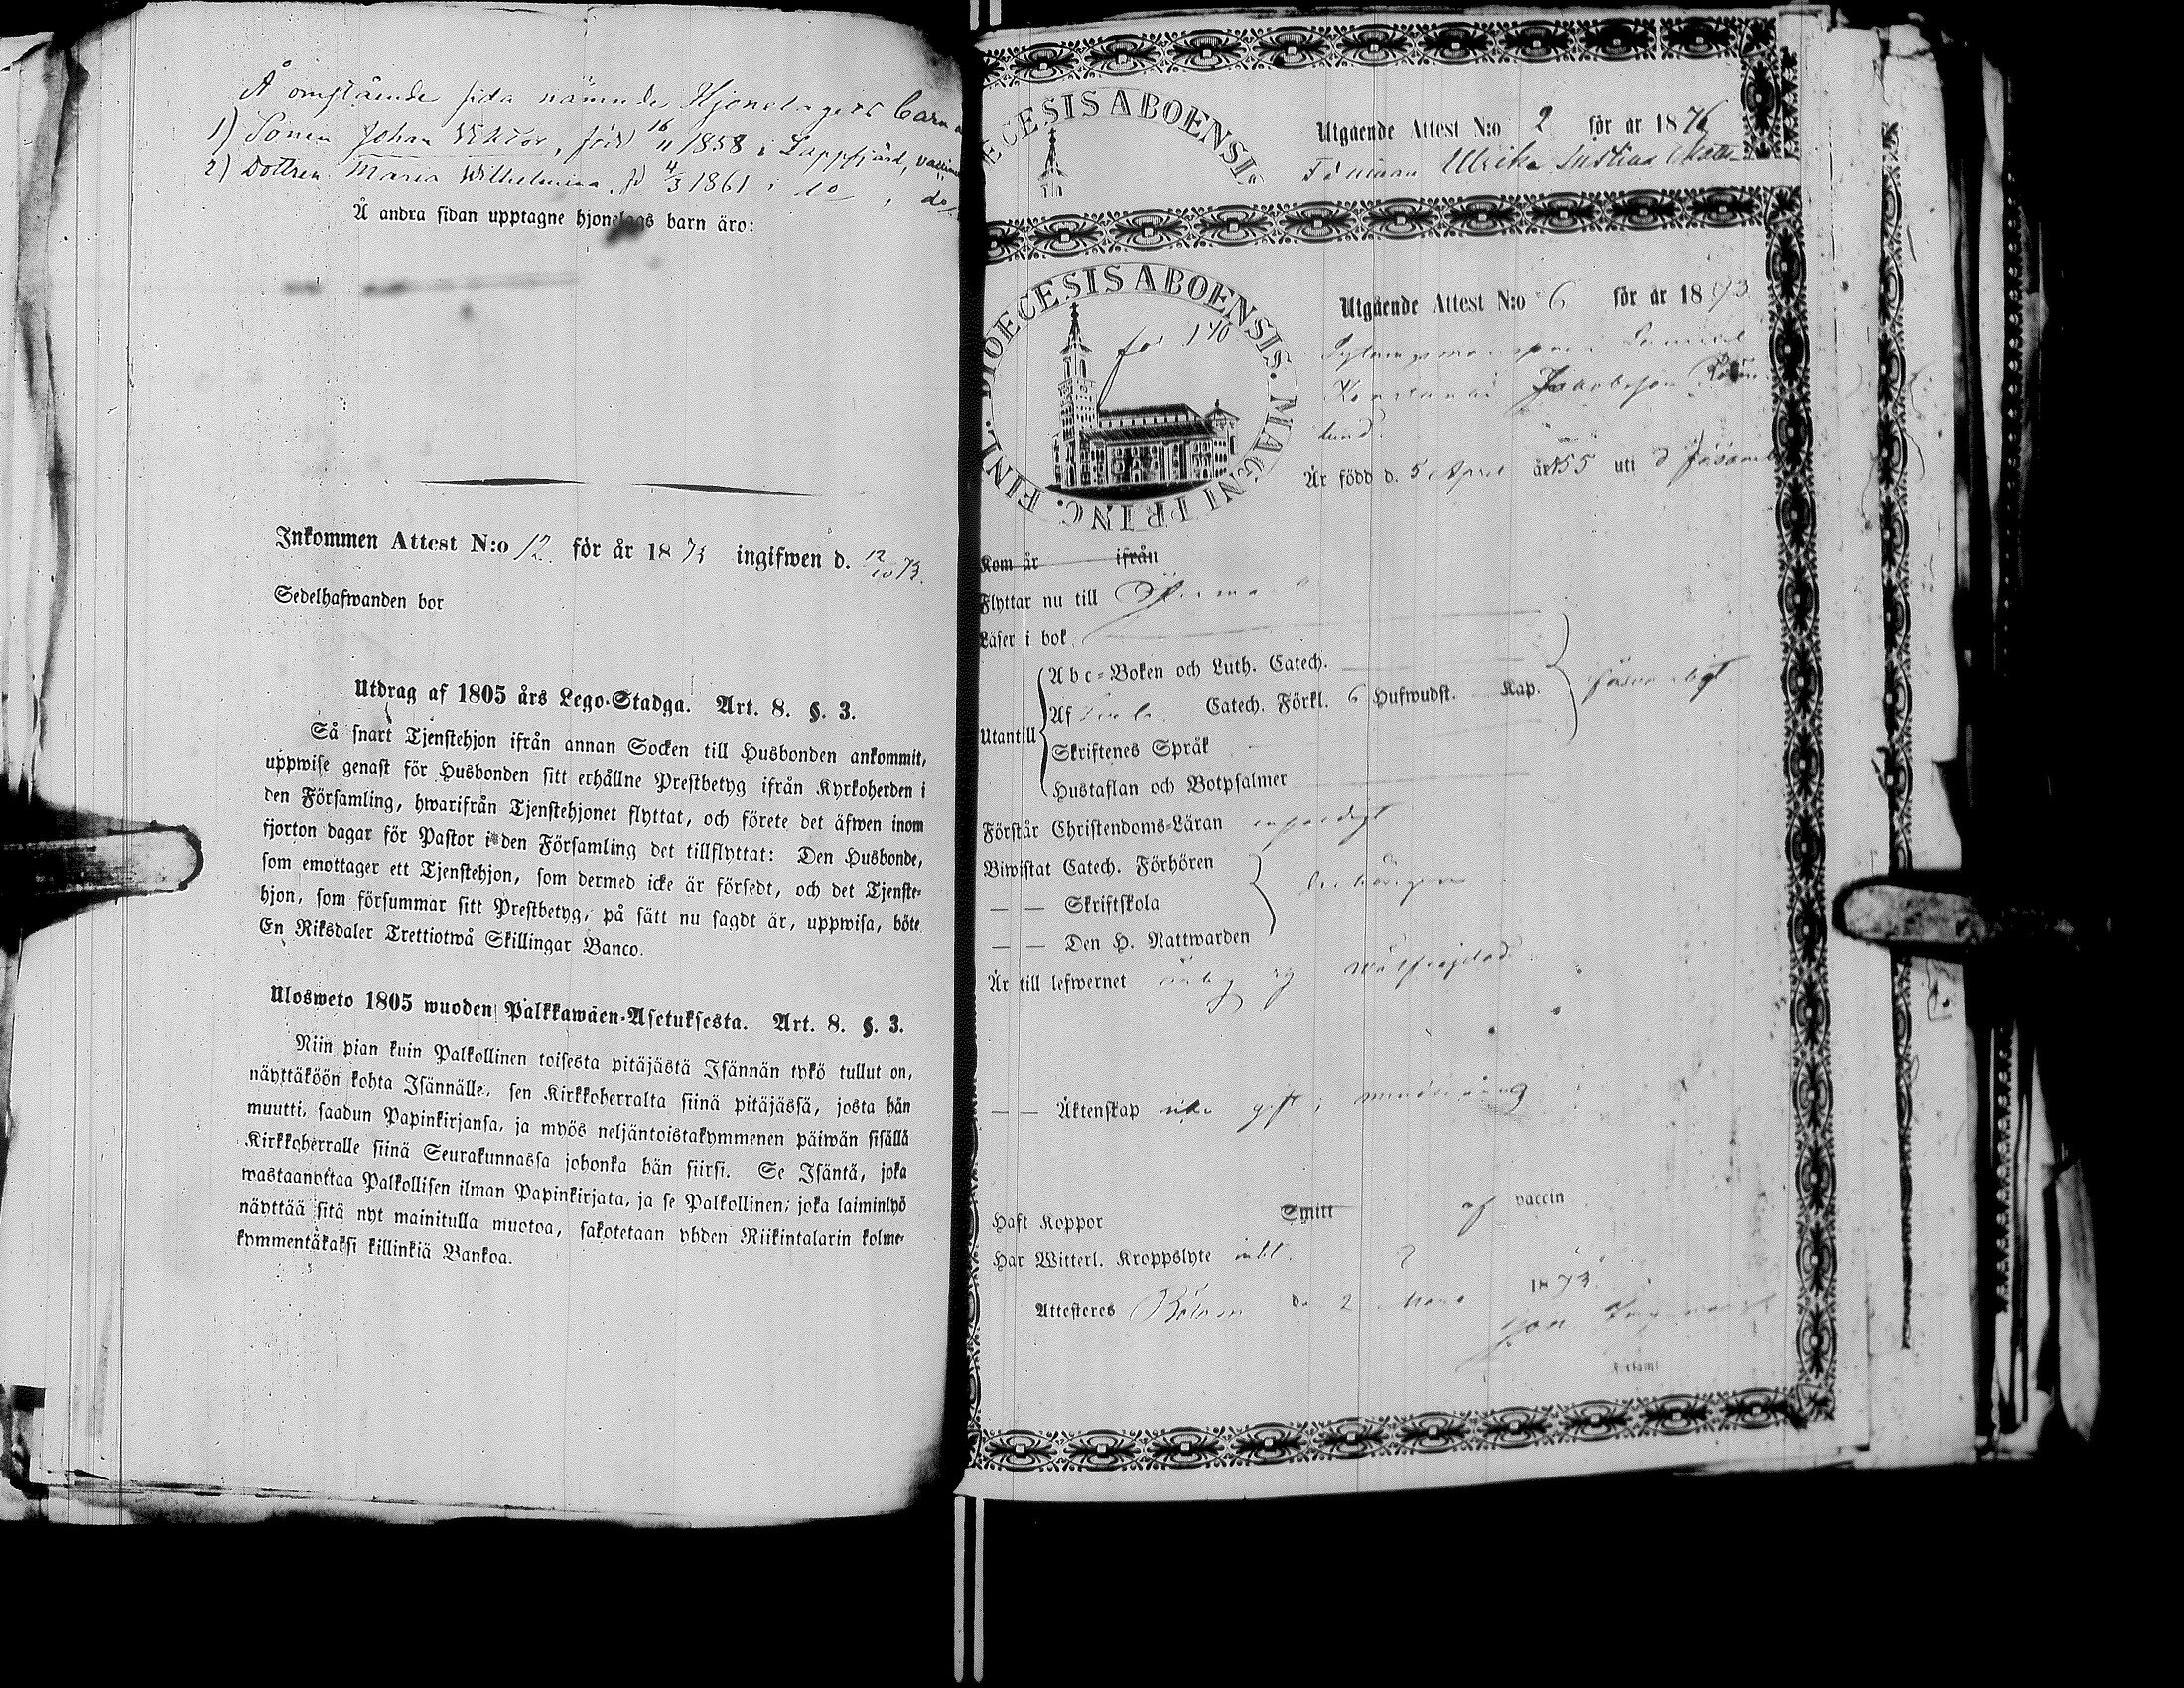 Å omstående sida nämnde Hjonelagets barn
1) Sonen Johan Viktor, född 16/11 1858 i Lappfjärd,
2) Dottren Maria Wilhelmina, fd 4/3 1861 i do, do
Å andra sidan upptagne hjonelags barn äro:
Inkommen Attest N:o 12 för år 1873 ingifwen d. 12/10 73.
Sedelhafwanden bor
Utdrag af 1805 års Lego-Stadga. Art. 8. §. 3.
Så snart Tjenstehjon ifrån annan Socken till Husbonden ankommit,
uppwise genast för Husbonden sitt erhållne Prestbetyg ifrån Kyrkoherden i
den Församling, hwarifrån Tjenstehjonet flyttat, och förete det äfwen inom
fjorton dagar för Pastor i den Församling det tillflyttat: Den Husbonde,
som emottager ett Tjenstehjon, som dermed icke är försedt, och det Tjenste-
hjon, som försummar sitt Prestbetyg, på sätt nu sagdt är, uppwisa, böte
En Riksdaler Trettiotwå Skillingar Banco.
Ulosweto 1805 wuoden Palkkawäen-Asetuksesta. Art. 8. §. 3.
Niin pian kuin Palkollinen toisesta pitäjästä Isännän tykö tullut on,
näyttäköön kohta Isännälle, sen Kirkkoherralta siinä pitäjässä, josta hän
muutti, saadun Papinkirjansa, ja myös neljäntoistakymmenen päiwän sisällä
Kirkkoherralle siinä Seurakunnassa johonka hän siirsi. Se Isäntä, joka
wastaanottaa Palkollisen ilman Papinkirjata, ja se Palkollinen, joka laiminlyö
näyttää sitä nyt mainitulla muotoa, sakotetaan yhden Riikintalarin kolme-
kymmentäkaksi killinkiä Bankoa.
ECESIS ABOENSIS
Utgående Attest N:o 2 för år 1876
Ulrika
DIOECESIS ABOENSIS. MAGNI PRINC. FINL.
fol 140
Utgående Attest N:o 6 för år 1873
Jakobsson
lund.
Är född d. 5 April år 55 uti
Kom år ifrån
Flyttar nu till
Läser i bok
Utantill
Abc-Boken och Luth. Catech.
Af Catech. Förkl. 6 Hufwudst. Kap. försvarligt
Skriftenes Språk
Hustaflan och Botpsalmer
Förstår Christendoms-Läran
Biwistat Catech. Förhören
— — Skriftskola
— — Den H. Nattwarden
Är till lefwernet wälfrejdad
— — Äktenskap icke gift, minderårig
Haft Koppor Smitt af vaccin
Har Witterl. Kroppslyte intet
Attesteres d. 2 Mars 1873